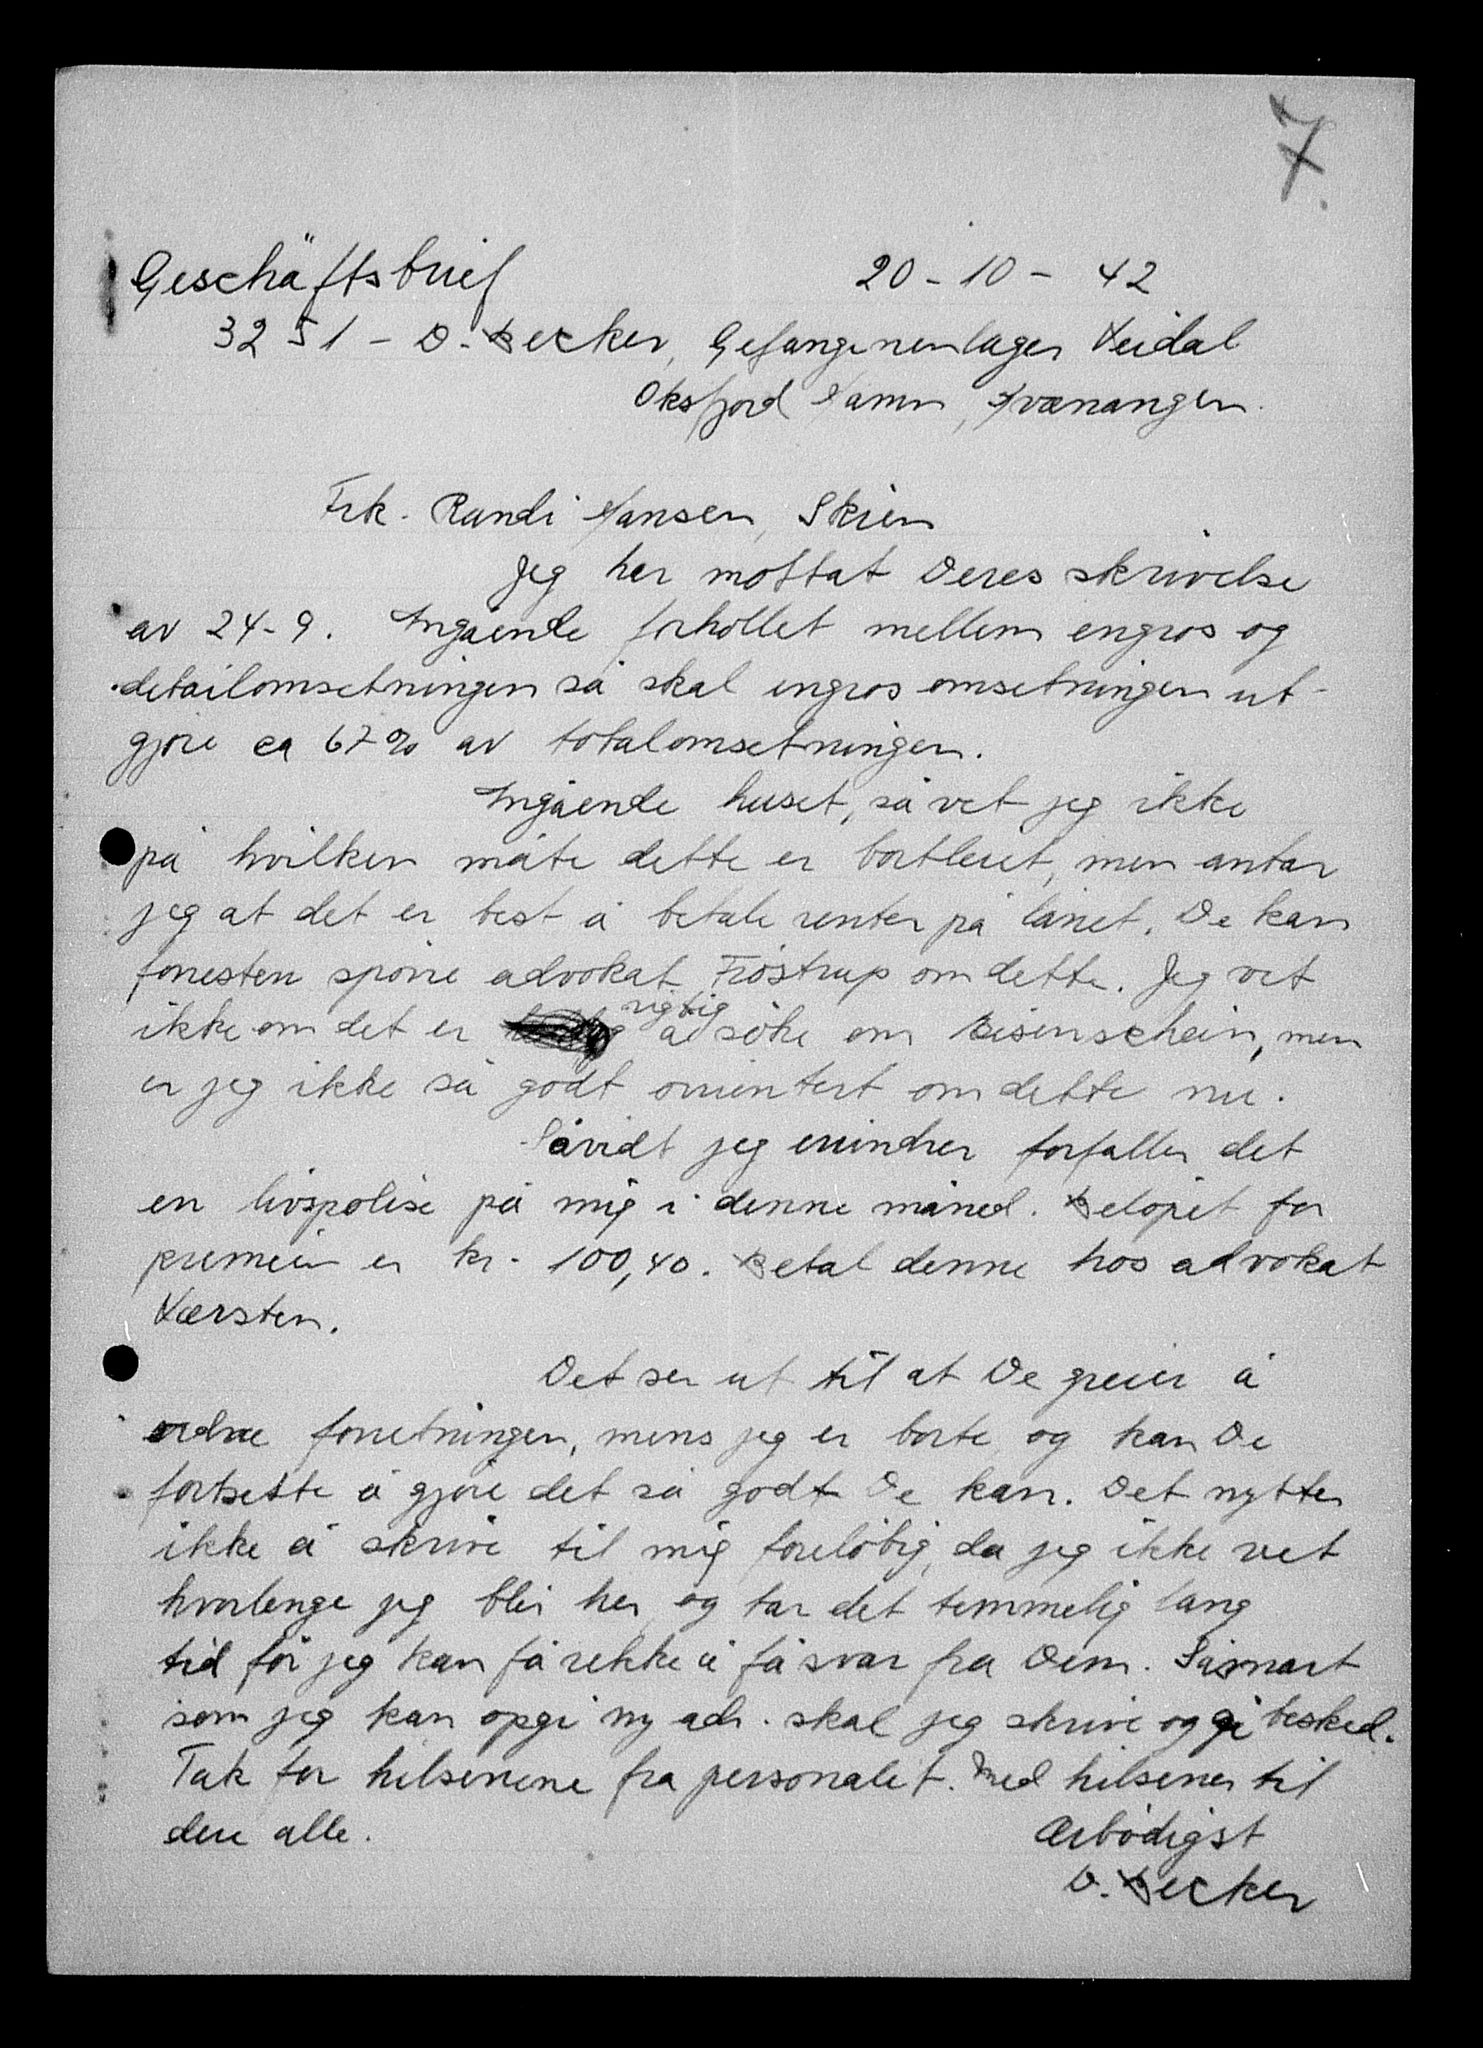 7.
Geschäftsbrief 20-10-42
3251 - D. Becker, Gefangenenlager Veidal
Oksfjord Havn, Kvænangen.
Frk. Randi Hansen, Skien
Jeg har mottat Deres skrivelse
av 24-9. Angående forhollet mellem engros og
detailomsetningen så skal engrosomsetningen ut-
gjøre ca 67% av totalomsetningen.
Angående huset, så vet jeg ikke
på hvilken måte dette er bortleiet, men antar
jeg at det er best å betale renter på lånet. De kan
foresten spørre advokat Frøstrup om dette. Jeg vet
ikke om det er rigtig å søke om Reisenschein, men
er jeg ikke så godt orientert om dette nu.
Såvidt jeg erindrer forfaller det
en livspolise på mig i denne måned. Beløpet for
premien er kr. 100,40. Betal denne hos advokat
Værsten.
Det ser ut til at De greier å
ordne forretningen, mens jeg er borte og kan De
fortsette å gjøre det så godt De kan. Det nytter
ikke å skrive til mig foreløbig, da jeg ikke vet
hvorlenge jeg blir her, og tar det temmelig lang
tid før jeg kan få rekke å få svar fra Dem. Såsnart
som jeg kan opgi ny adr. skal jeg skrive og gi besked.
Tak for hilsenene fra personalet. Med hilsener til
dere alle. Ærbødigst
D. Becker